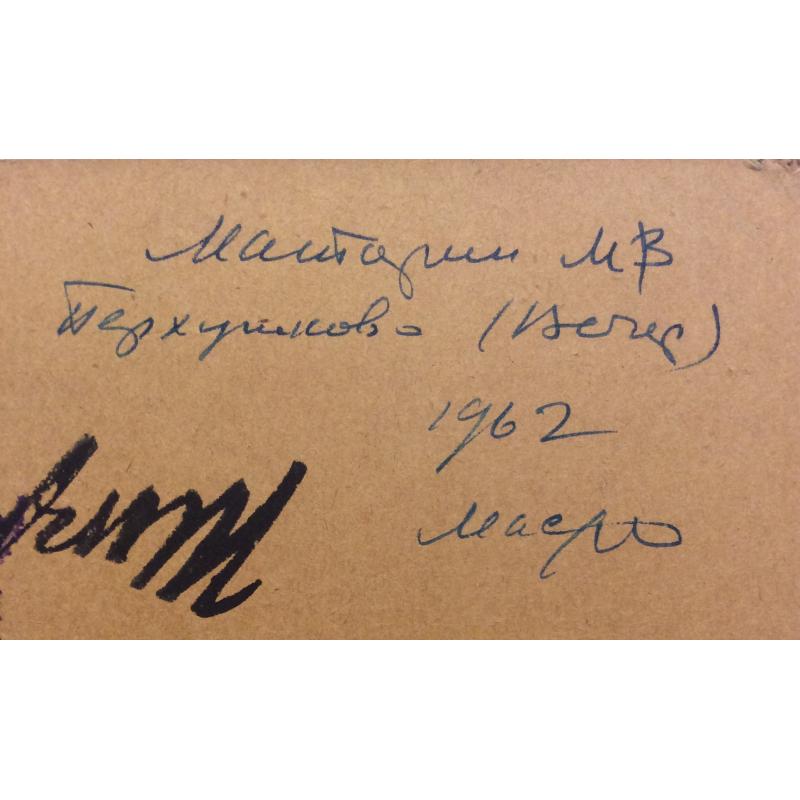 Мантория МВ
Перхушково (Вечер)
1962
масло